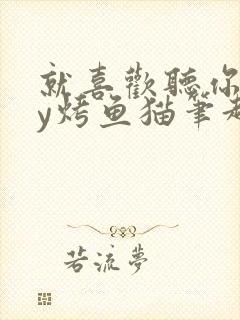 就喜歡聽你
y烤鱼猫筆趣
若流夢